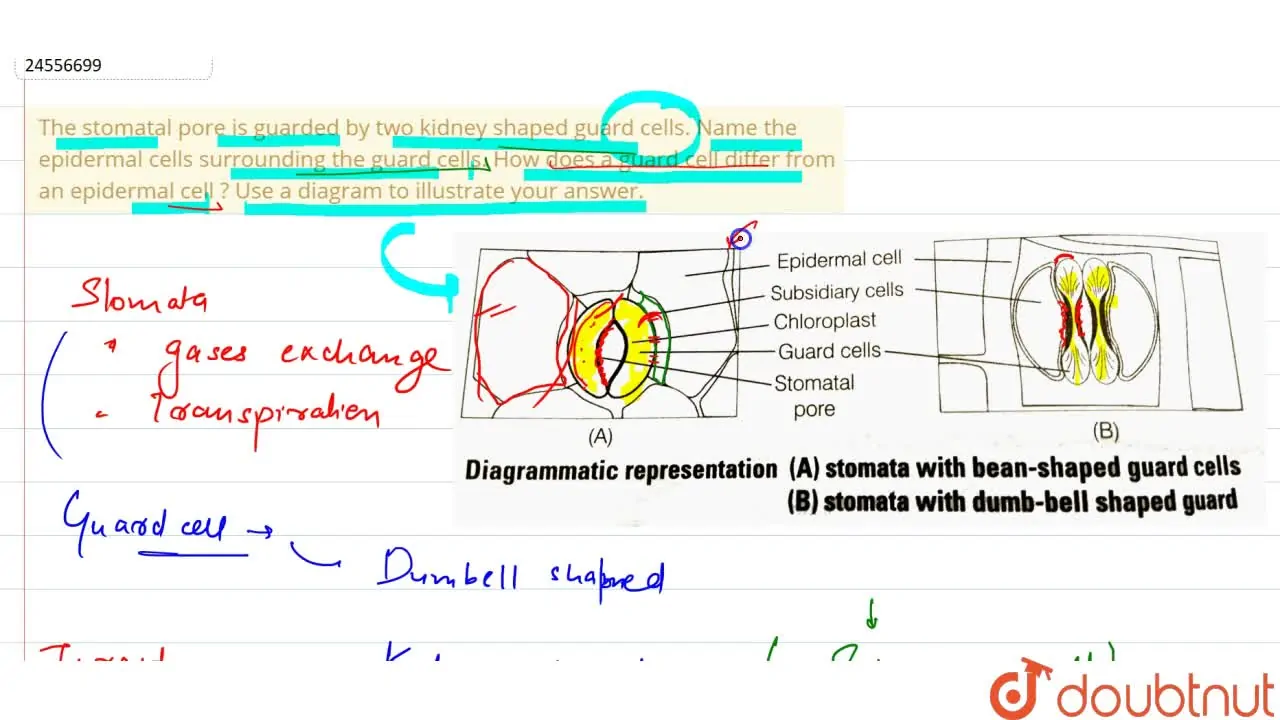 24556699
The stomatal pore is guarded by two kidney shaped guard cells. Name the
epidermal cells surrounding the guard cells. How does a guard cell differ from
an epidermal cell ? Use a diagram to illustrate your answer.
Stomata
gases exchange
Transpiration
Epidermal cell
Subsidiary cells
Chloroplast
Guard cells
Stomatal
pore
(A)
(B)
Diagrammatic representation (A) stomata with bean-shaped guard cells
(B) stomata with dumb-bell shaped guard
Guard cell →
Dumbell shaped
doubtnut